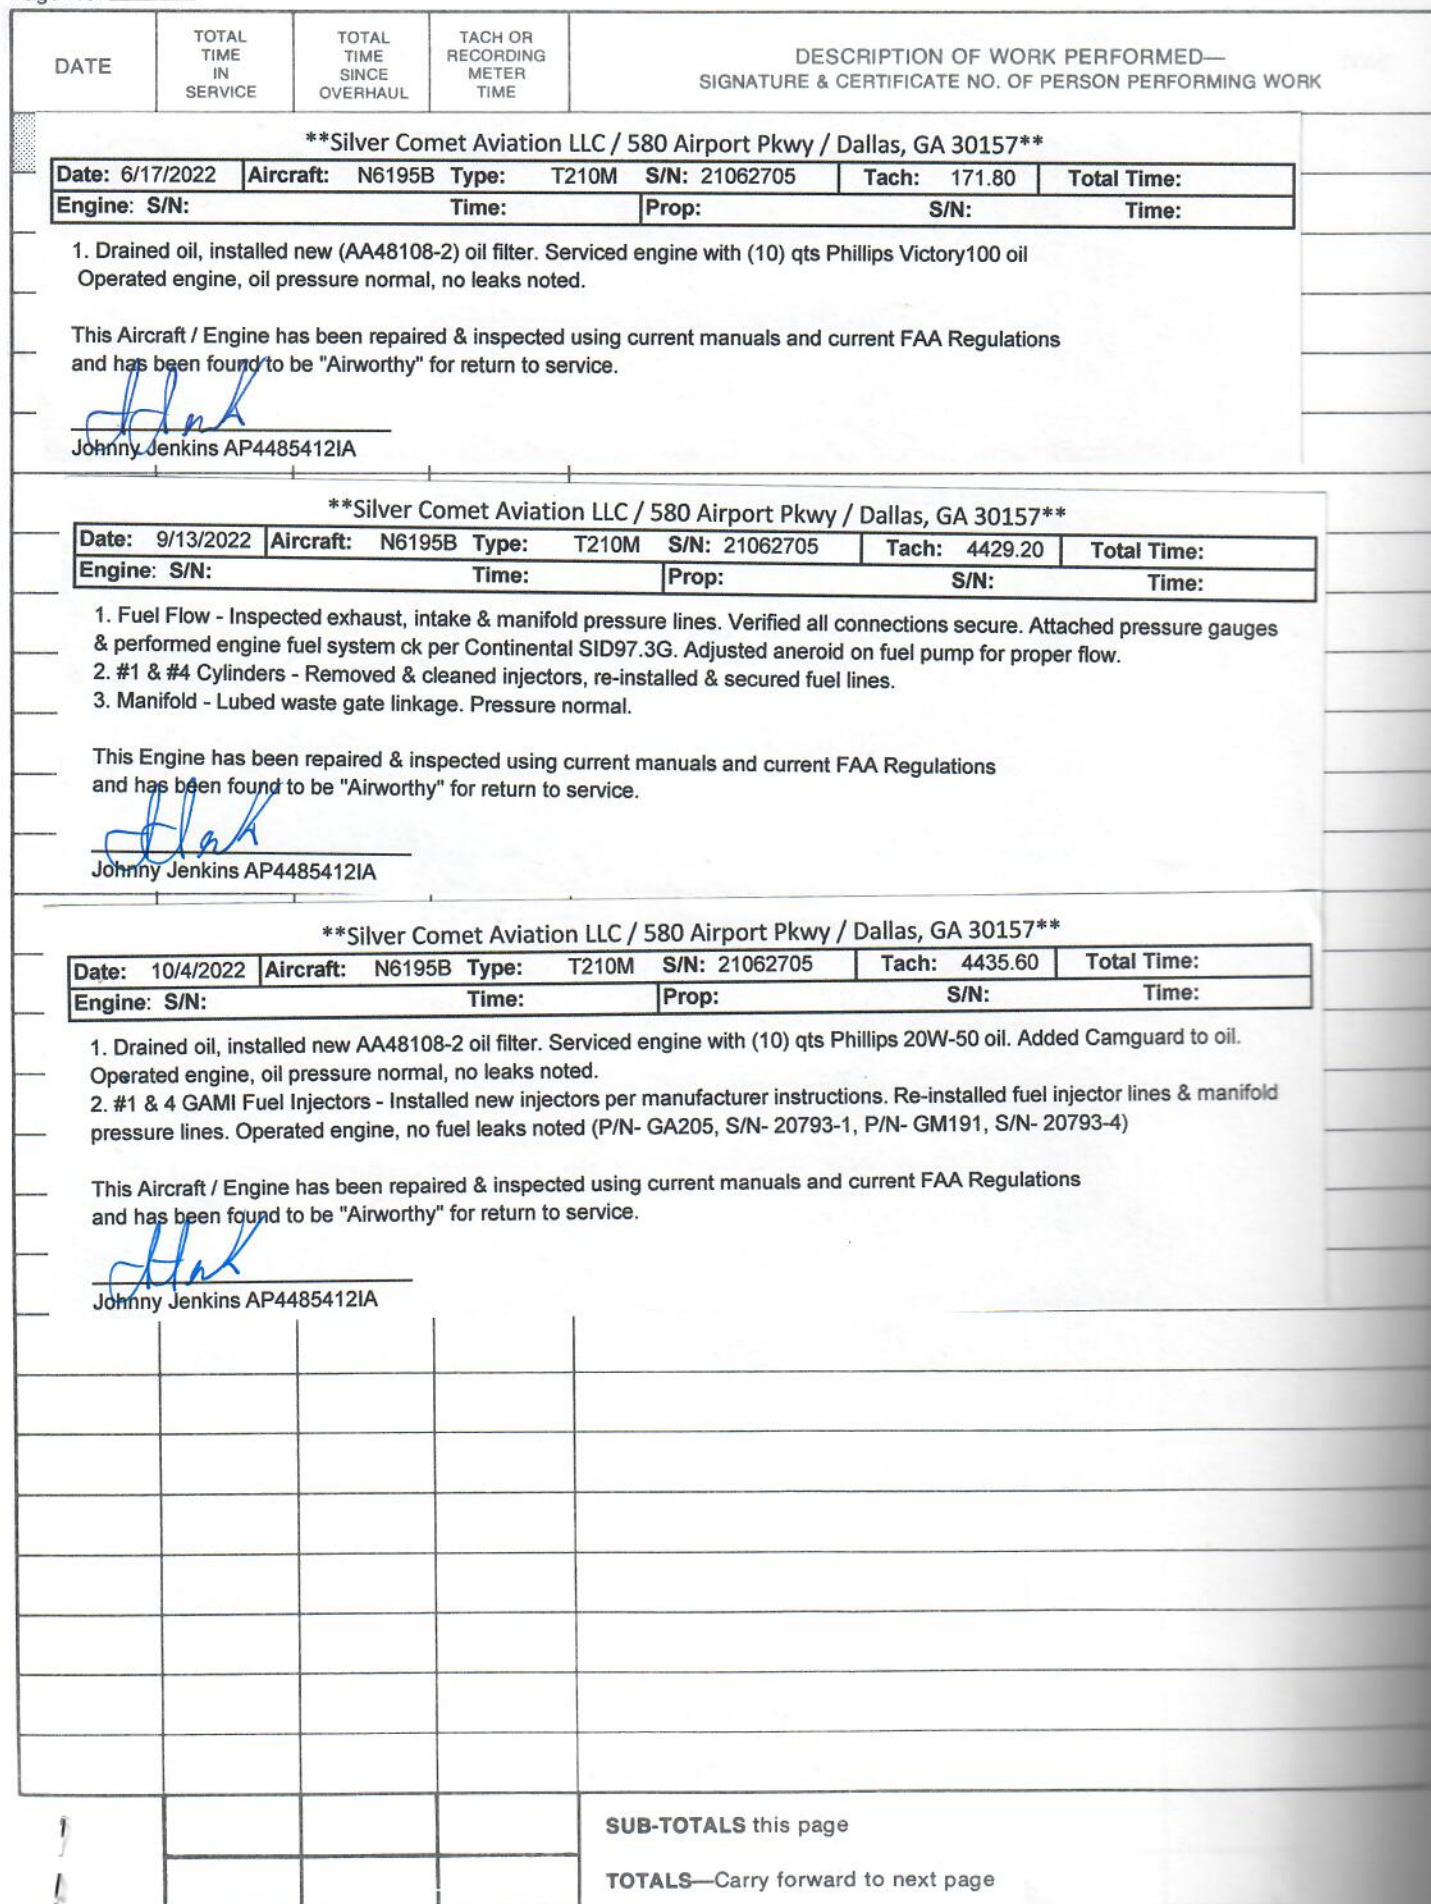 DATE
TOTAL
TIME
IN
SERVICE
TOTAL
TIME
SINCE
OVERHAUL
TACH OR
RECORDING
METER
TIME
DESCRIPTION OF WORK PERFORMED—
SIGNATURE & CERTIFICATE NO. OF PERSON PERFORMING WORK
**Silver Comet Aviation LLC / 580 Airport Pkwy / Dallas, GA 30157**
Date: 6/17/2022 Aircraft: N6195B Type: T210M S/N: 21062705 Tach: 171.80 Total Time:
Engine: S/N: Time: Prop: S/N: Time:
1. Drained oil, installed new (AA48108-2) oil filter. Serviced engine with (10) qts Phillips Victory100 oil
Operated engine, oil pressure normal, no leaks noted.
This Aircraft / Engine has been repaired & inspected using current manuals and current FAA Regulations
and has been found to be "Airworthy" for return to service.
Johnny Jenkins AP4485412IA
**Silver Comet Aviation LLC / 580 Airport Pkwy / Dallas, GA 30157**
Date: 9/13/2022 Aircraft: N6195B Type: T210M S/N: 21062705 Tach: 4429.20 Total Time:
Engine: S/N: Time: Prop: S/N: Time:
1. Fuel Flow - Inspected exhaust, intake & manifold pressure lines. Verified all connections secure. Attached pressure gauges
& performed engine fuel system ck per Continental SID97.3G. Adjusted aneroid on fuel pump for proper flow.
2. #1 & #4 Cylinders - Removed & cleaned injectors, re-installed & secured fuel lines.
3. Manifold - Lubed waste gate linkage. Pressure normal.
This Engine has been repaired & inspected using current manuals and current FAA Regulations
and has been found to be "Airworthy" for return to service.
Johnny Jenkins AP4485412IA
**Silver Comet Aviation LLC / 580 Airport Pkwy / Dallas, GA 30157**
Date: 10/4/2022 Aircraft: N6195B Type: T210M S/N: 21062705 Tach: 4435.60 Total Time:
Engine: S/N: Time: Prop: S/N: Time:
1. Drained oil, installed new AA48108-2 oil filter. Serviced engine with (10) qts Phillips 20W-50 oil. Added Camguard to oil.
Operated engine, oil pressure normal, no leaks noted.
2. #1 & 4 GAMI Fuel Injectors - Installed new injectors per manufacturer instructions. Re-installed fuel injector lines & manifold
pressure lines. Operated engine, no fuel leaks noted (P/N- GA205, S/N- 20793-1, P/N- GM191, S/N- 20793-4)
This Aircraft / Engine has been repaired & inspected using current manuals and current FAA Regulations
and has been found to be "Airworthy" for return to service.
Johnny Jenkins AP4485412IA
SUB-TOTALS this page
TOTALS—Carry forward to next page